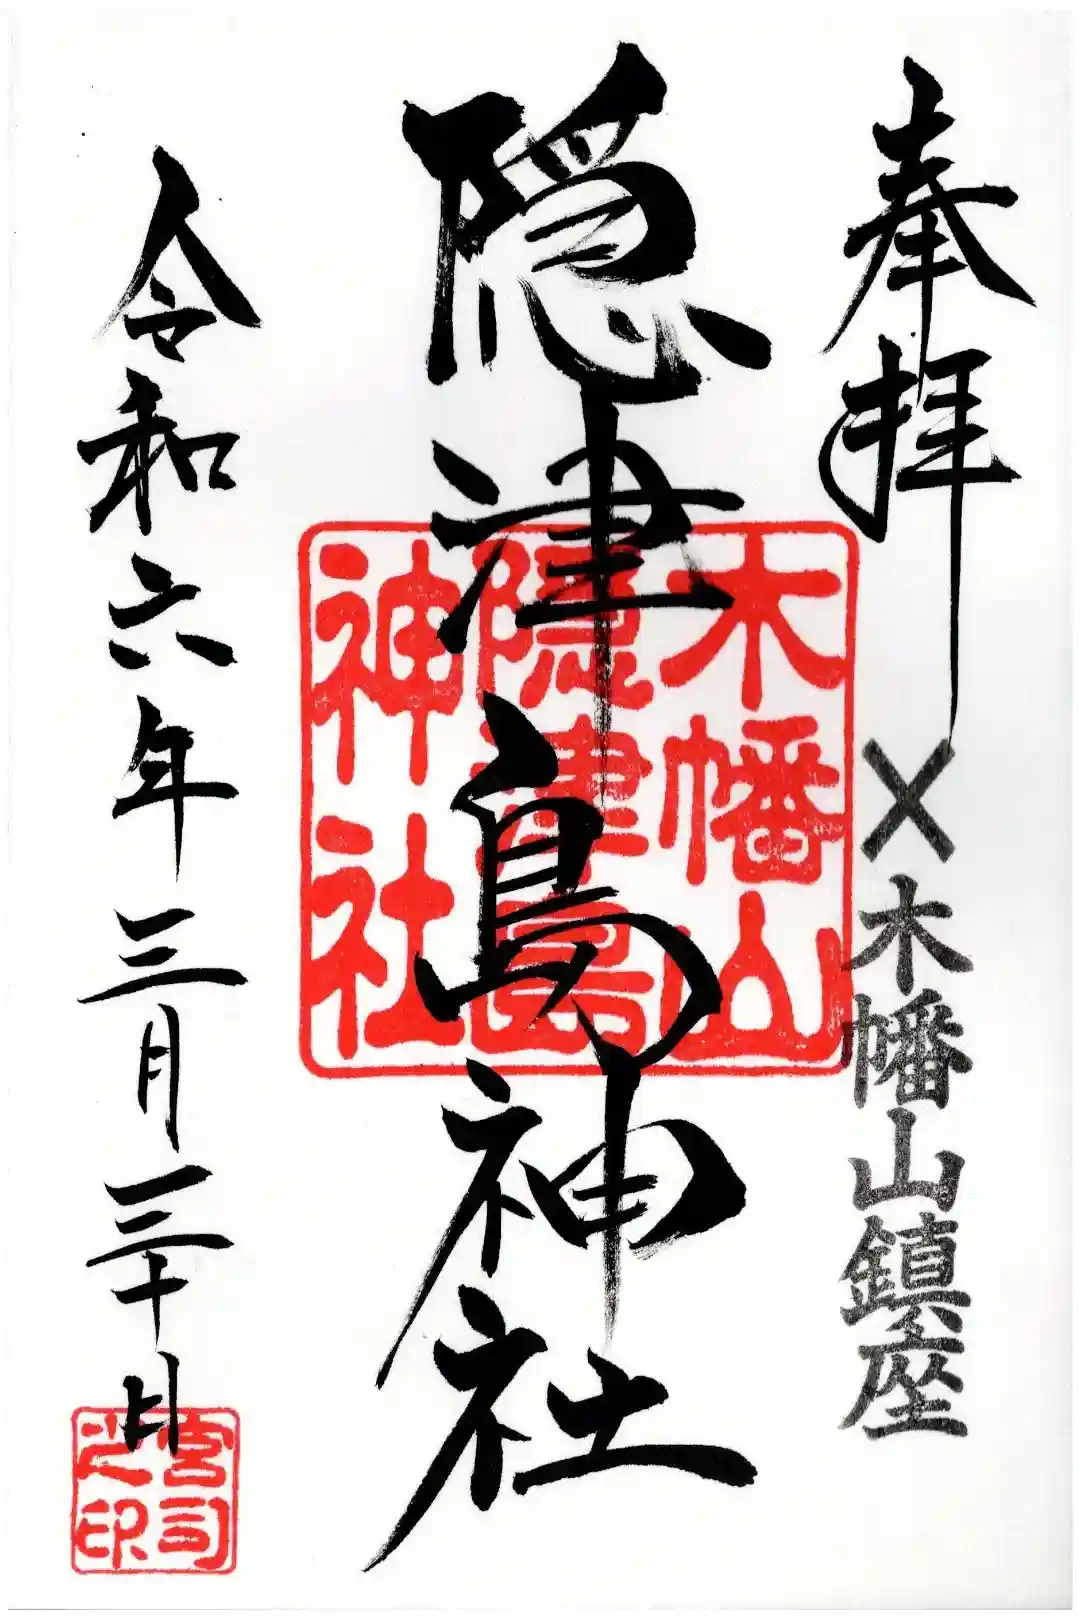 奉拝
〆木幡山鎮座
隠津島神社
木幡山
隠津島
神社
令和六年三月三十日
宮司
之印